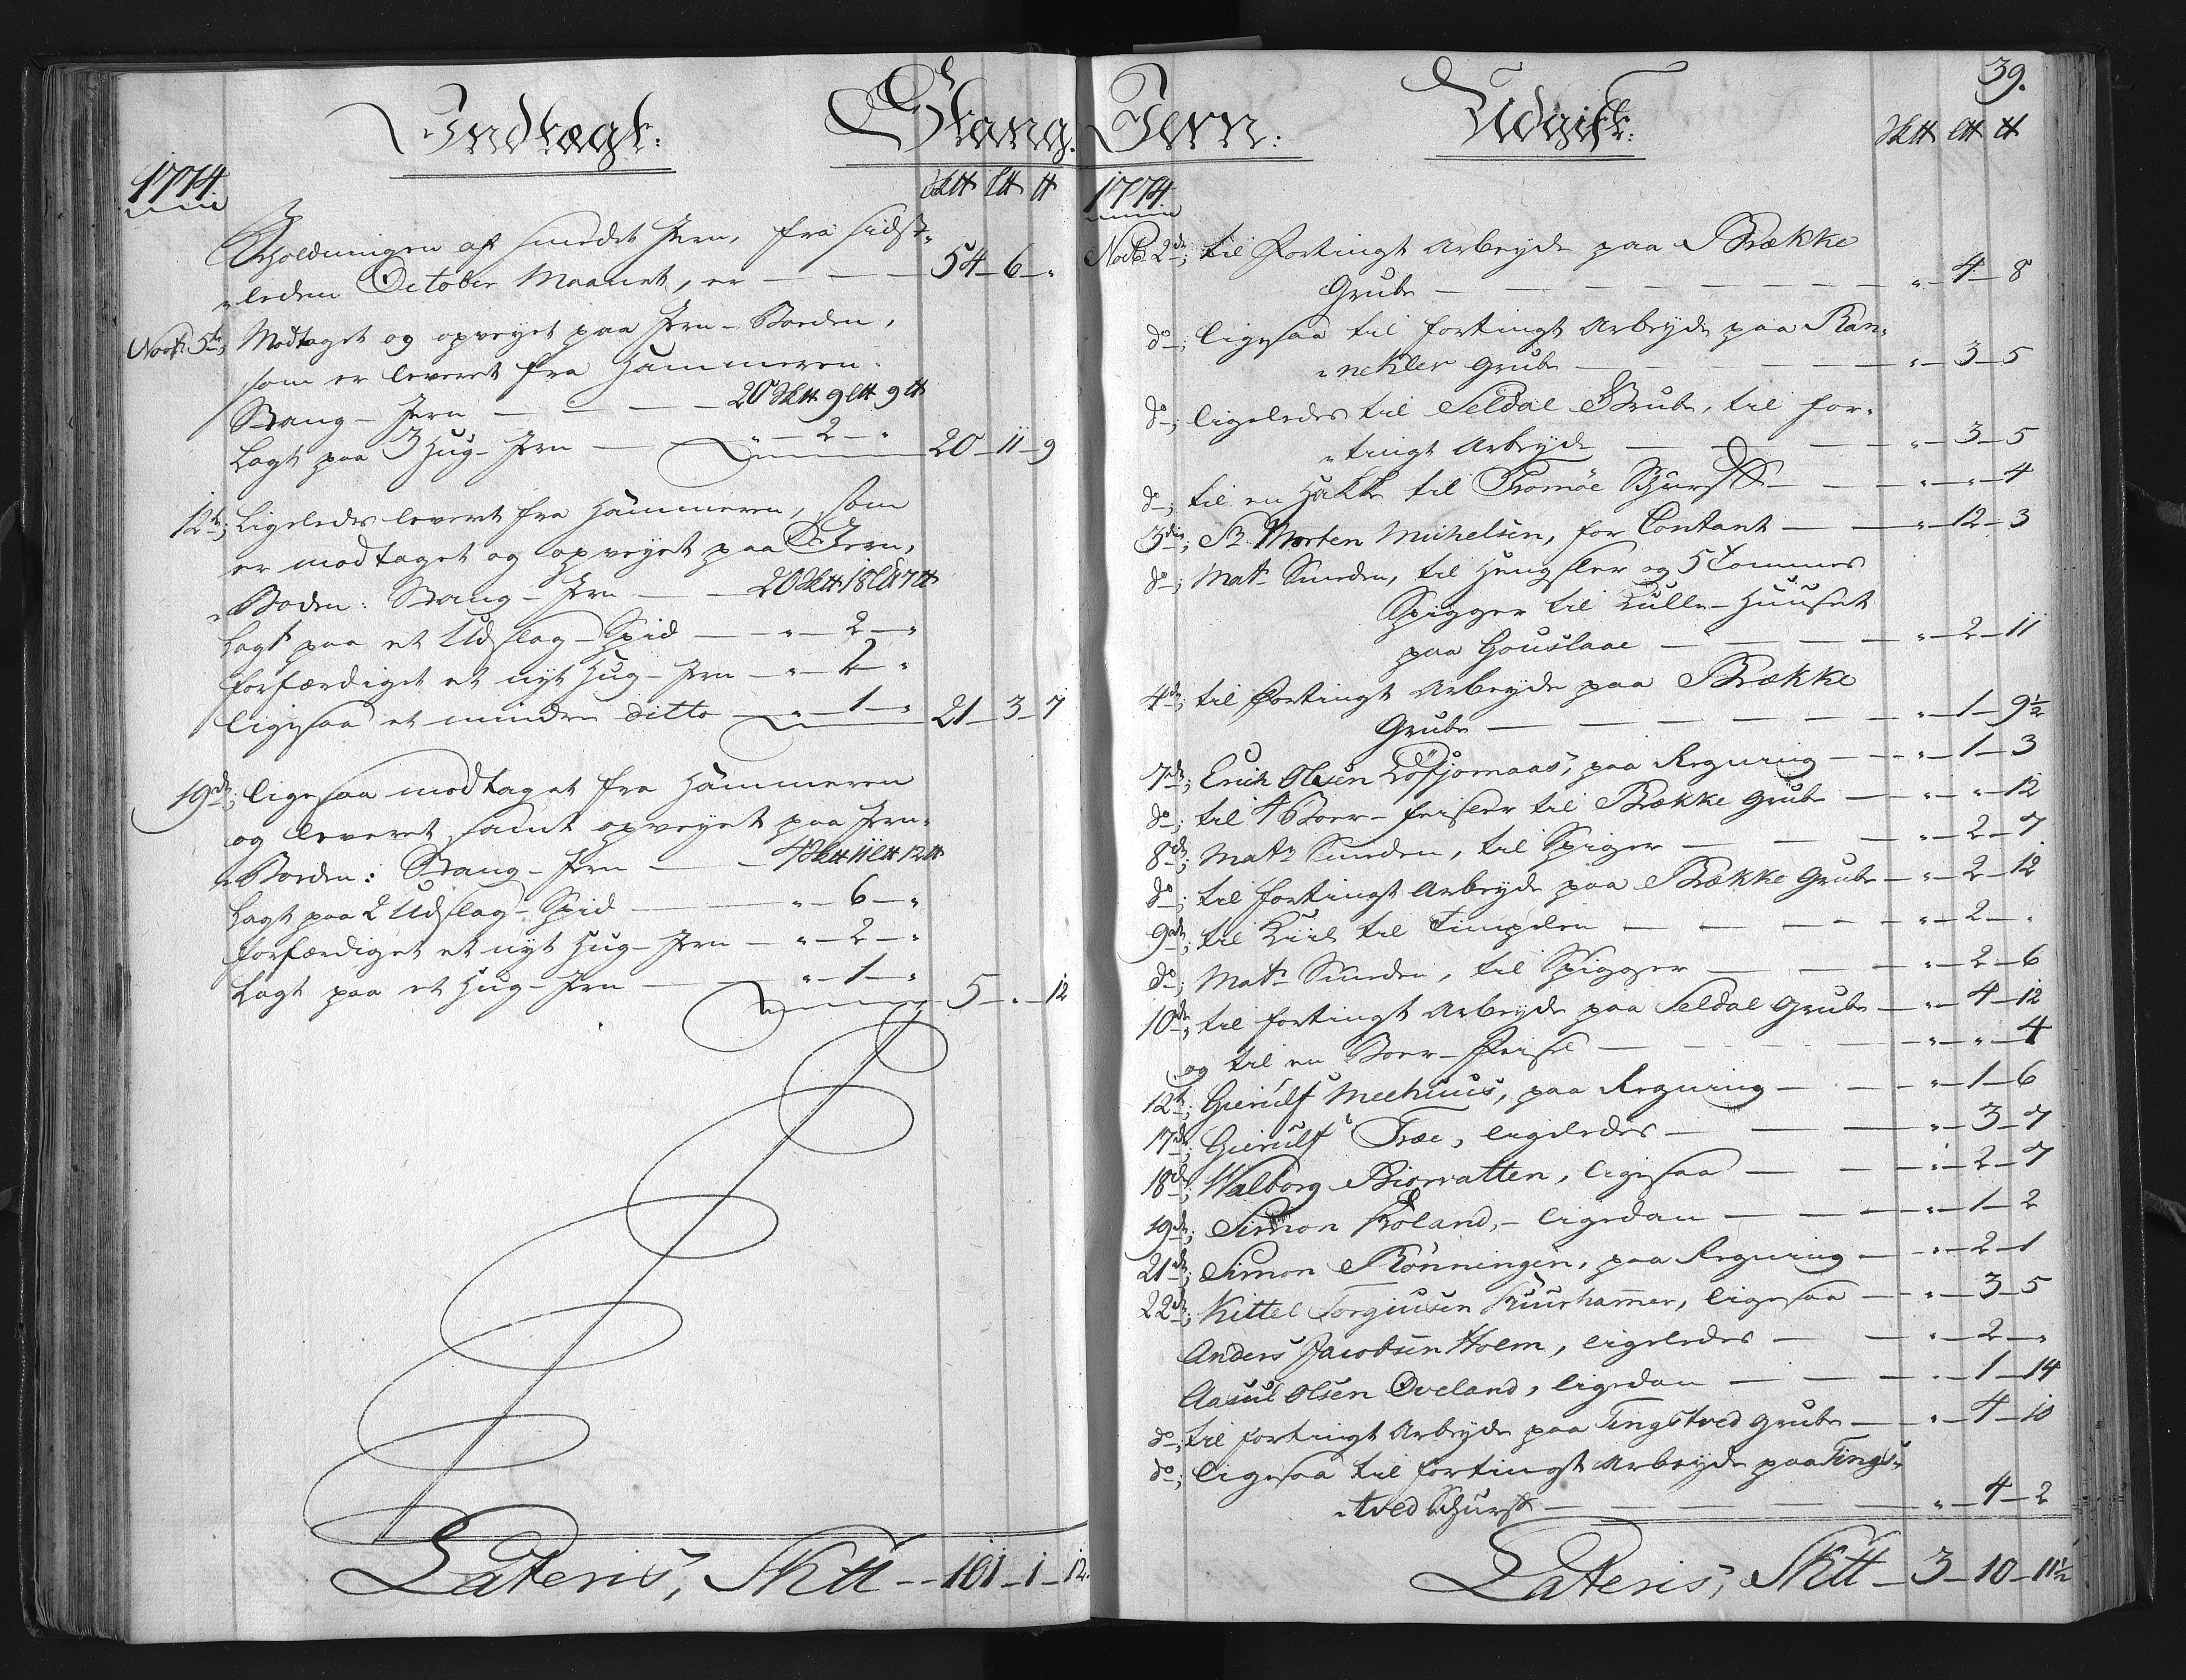 Indtægt: Stang-
1774. Sk℔ L℔ ℔
Beholdningen af smedet Jern, fra sidst-
„leden October Maanet, er — 54 — 6 — „
Novb. 5te; Modtaget og opveyet paa Jern-Boeden,
som er leveret fra Hammeren.
Stang-Jern — 20 Sk℔ 9 L℔ 9 ℔
Lagt paa 3 Hug-Jern — „ — 2 — „ 20 — 11 — 9
12te; Ligeledes levert fra Hammeren, som
er modtaget og opveyet paa Jern,
„Boden: Stang-Jern — 20 Sk℔ 18 L℔ 7 ℔
Lagt paa et Udslag-Spid — „ — 2 — „
forfærdiget et nyt Hug-Jern — „ — 2 — „
ligesaa et mindre ditto — „ — 1 — „ 21 — 3 — 7
19de; ligesaa modtaget fra Hammeren
og leveret, samt opveyet paa Jern-
„Boeden: Stang-Jern — 4 Sk℔ 11 L℔ 12 ℔
Lagt paa 2 Udslag-Spid — „ — 6 — „
forfærdiget et nyt Hug-Jern — „ — 2 — „
Lagt paa et Hug-Jern — „ — 1 — „ 5 — „ — 12
Lateris, Sk℔ — 101 — 1 — 12.
39.
Jern: Udgift:
Sk℔ L℔ ℔
1774
Novb. 2de; til Fortingt Arbeyde paa Brække
Grube — „ — 4 — 8
do; ligesaa til fortingt Arbeyde paa Ran-
„nekler Grube — „ — 3 — 5
do; ligeledes til Seldal Grube, til for-
„tingt Arbeyde — „ — 3 — 5
do; til en Hakke til Tromöe Skurf — „ — „ — 4
3die; Sr. Morten Michelsen, for Contant — „ — 12 — 3
do; Mats Smeden, til Hengsler og 5 Tommes
Spigger til Kulle-Huuset
paa Gouslaae — „ — 2 — 11
4de; til Fortingt Arbeyde paa Brække
Grube — „ — 1 — 9½
7de; Erich Olsen, paa Regning — „ — 1 — 3
do; til 4 Boer- til Brække Grube — „ — „ — 12
8de; Mats Smeden, til Spiger — „ — 2 — 7
do; til fortingt Arbeyde paa Brække Grube — „ — 2 — 12
9de; til Kiil til — „ — 2 — „
do; Mats Smeden, til Spigger — „ — 2 — 6
10de; til fortingt Arbeyde paa Seldal Grube — „ — 4 — 12
og til en Boer- — „ — „ — 4
12te; Gierulf Meehuus, paa Regning — „ — 1 — 6
17de; Gierulf Træe, ligeledes — „ — 3 — 7
18de; Walborg Biorvatten, ligesaa — „ — 2 — 7
19de; Simon Froland, — ligedan — „ — 1 — 2
21de; Simon Rönningen, paa Regning — „ — 2 — 1
22de; Kittel Torgiusen, ligesaa — „ — 3 — 5
Anders Jacobsen Holm, ligeledes — „ — 2 — „
Aasul Olsen Öveland, ligedan — „ — 1 — 14
do; til fortingt Arbeyde paa Tingstved Grube — „ — 4 — 10
do; ligesaa til fortingt Arbeyde paa Tings-
„tved Skurf — „ — 4 — 2
Lateris, Sk℔ — 3 — 10 — 11½